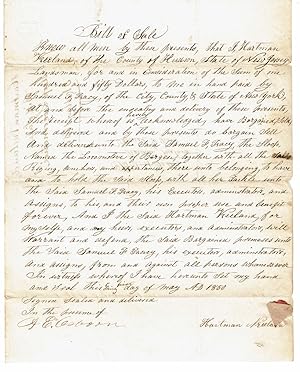 Bill of Sale
Know all men by these presents, that I Hartman
Vreeland, of the County of Hudson, State of New Jersey,
Laydsman, for and in consideration of the Sum of one
hundred and fifty Dollars, to me in hand paid by
Samuel F. Tracy, of the City County & State of New York,
at and before the ensealing and delivery of these presents,
the receipt whereof is hereby acknowledged, have Bargained, Sold,
and delivered and by these presents do bargain sell
and deliver unto the Said Samuel F. Tracy, the Sloop
Named the Locomotive of Bergen, together with all the
and appurtenances, there unto belonging, to have
and to hold the Said Sloop with all her tackle unto
the Said Samuel F. Tracy, his Executors, administrators, and
Assigns, to his and their own proper use and benefit
forever, And I the Said Hartman Vreeland, for
myself, and my heirs, executors, and administrators, will
Warrant and defend the Said Bargained premises unto
the Said Samuel F. Tracy, his executors, administrators,
and assigns, from and against all persons whomsoever
In witness whereof I have hereunto set my hand
and Seal this day of May AD 1850
Signed Sealed and delivered
In the presence of
Hartman Vreeland